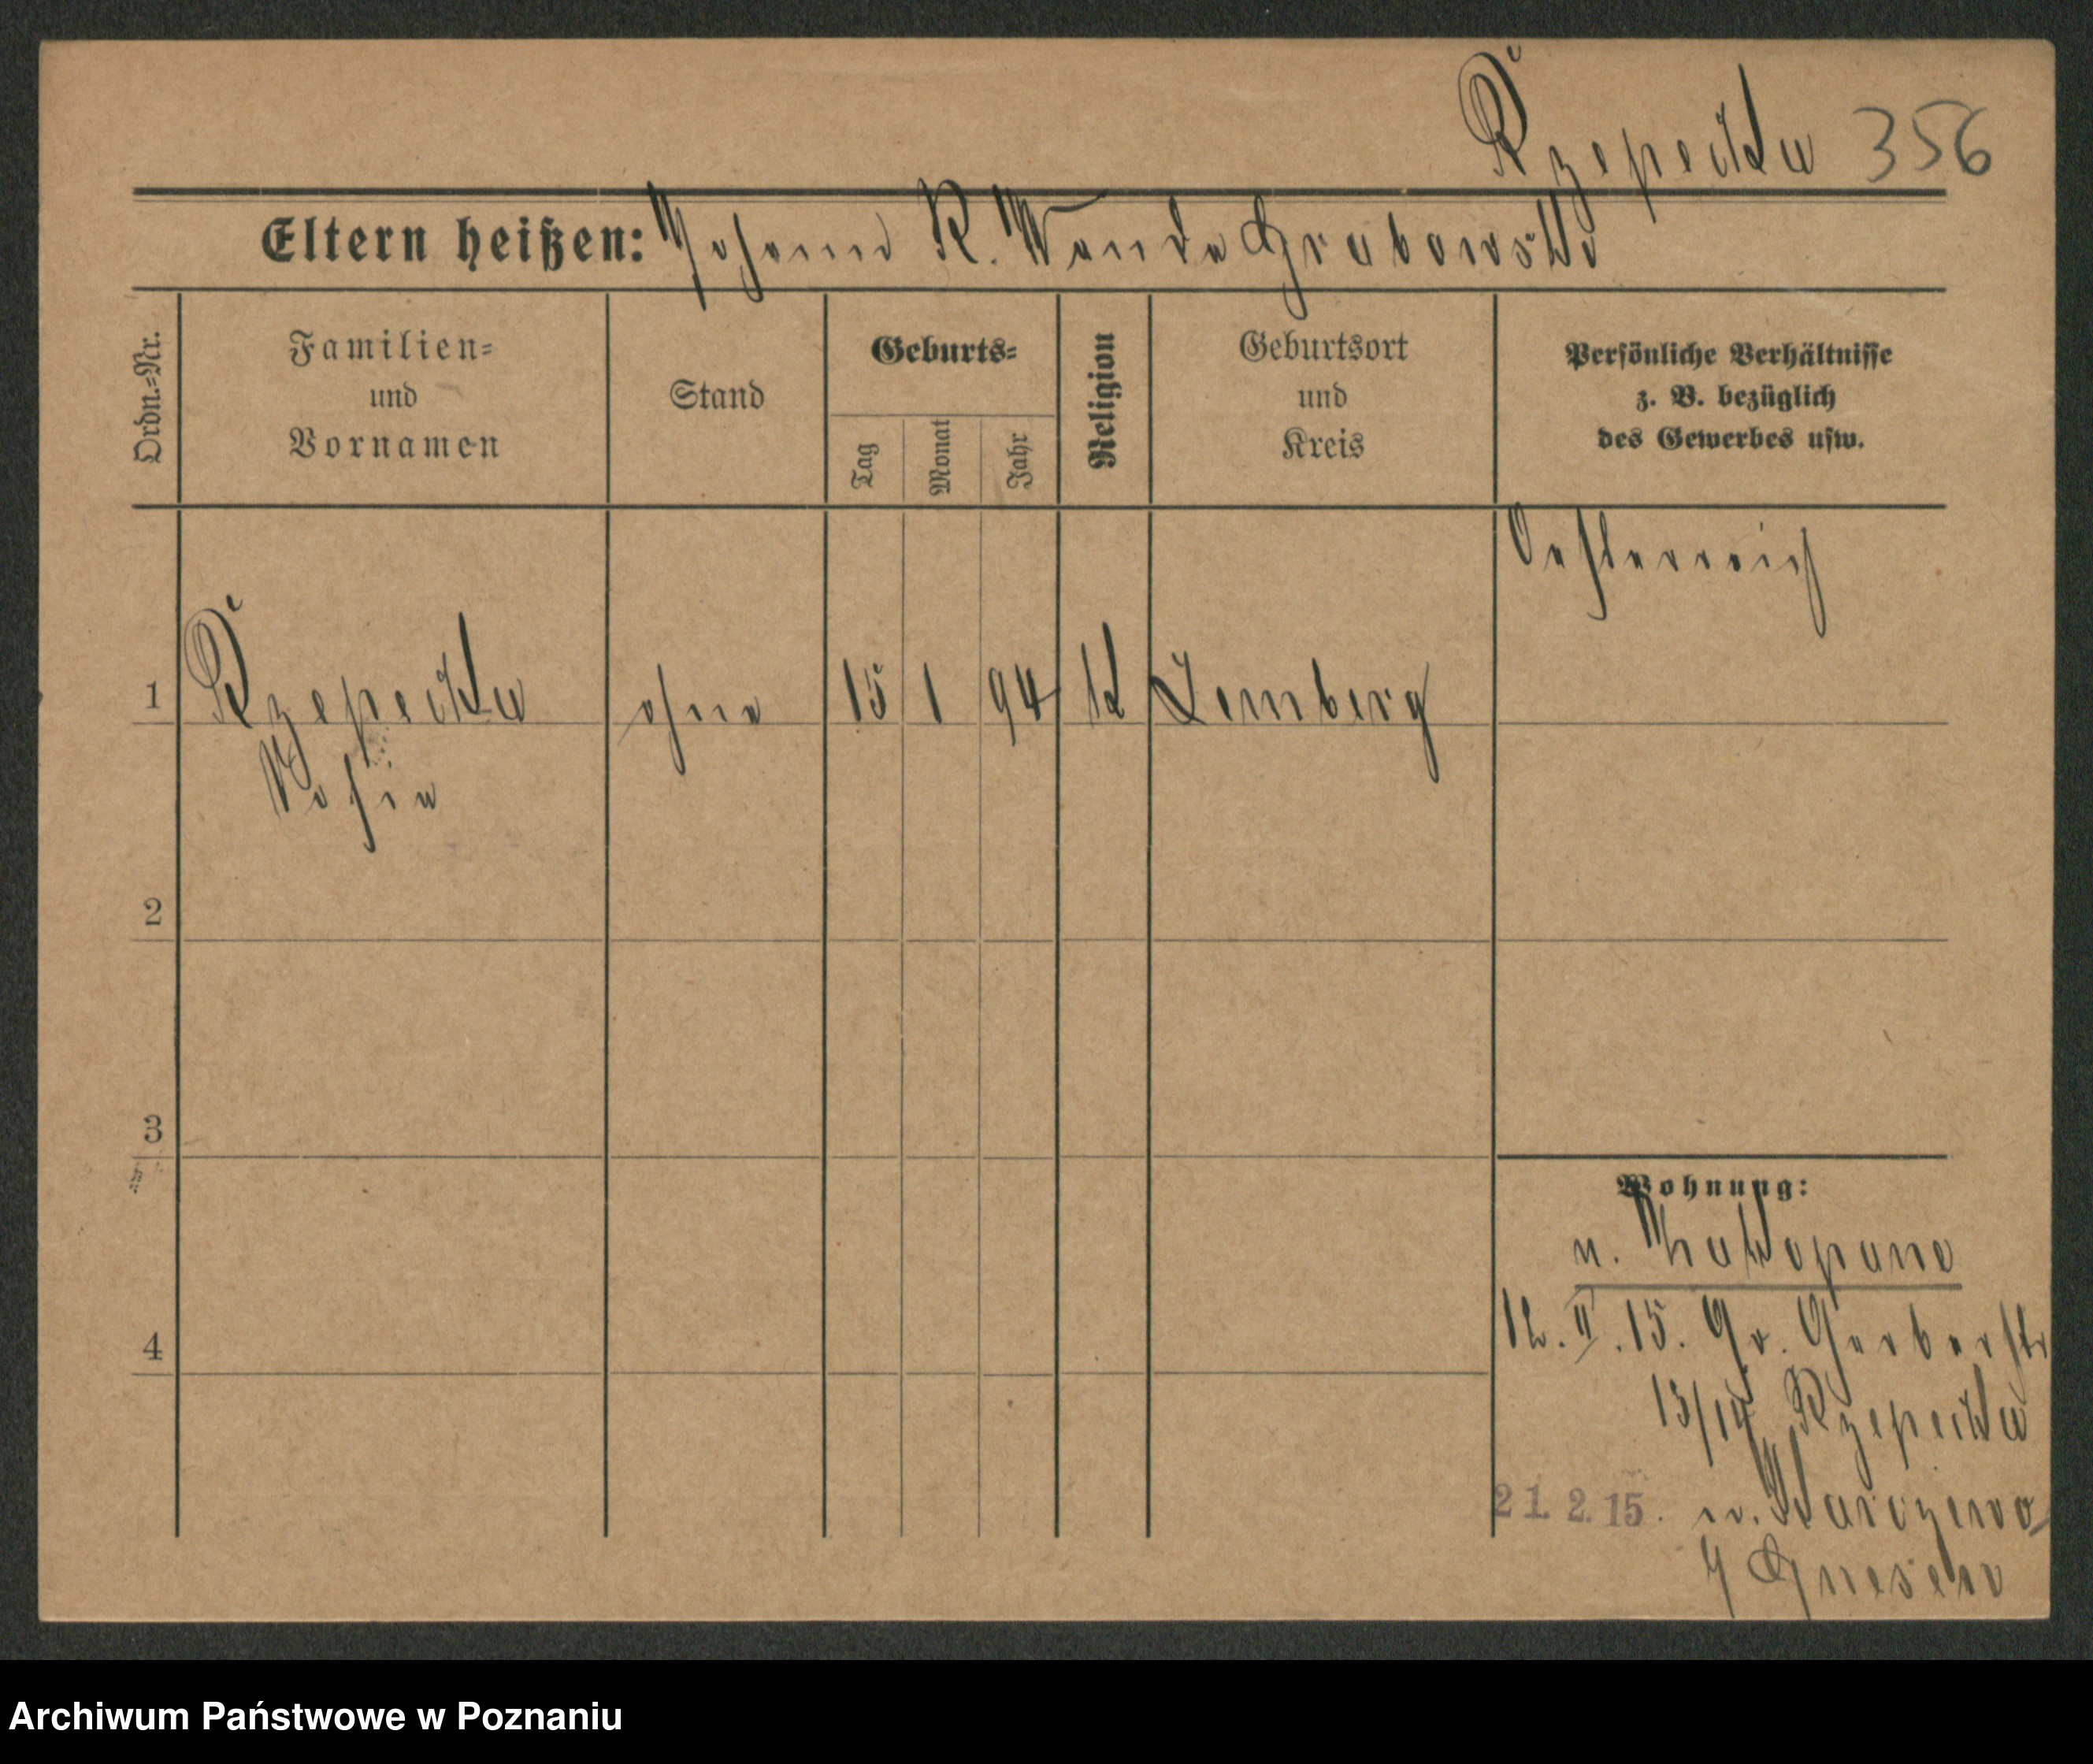 Rzepecka 356
Eltern heißen: Johann R. Wanda Grabowski
Ordn.=Nr.
Familien=
und
Vornamen
Stand
Geburts=
Tag
Monat
Jahr
Religion
Geburtsort
und
Kreis
Persönliche Verhältnisse
z. B. bezüglich
des Gewerbes usw.
Oesterreich
1 Rzepecka ohne 15 1 94 k Lemberg
2
3
4
Wohnung:
v. Zakopane
12. II. 15. Gr. Gerberstr
13/14 Rzepecka
21. 2. 15. n.
Gnesen
Archiwum Państwowe w Poznaniu